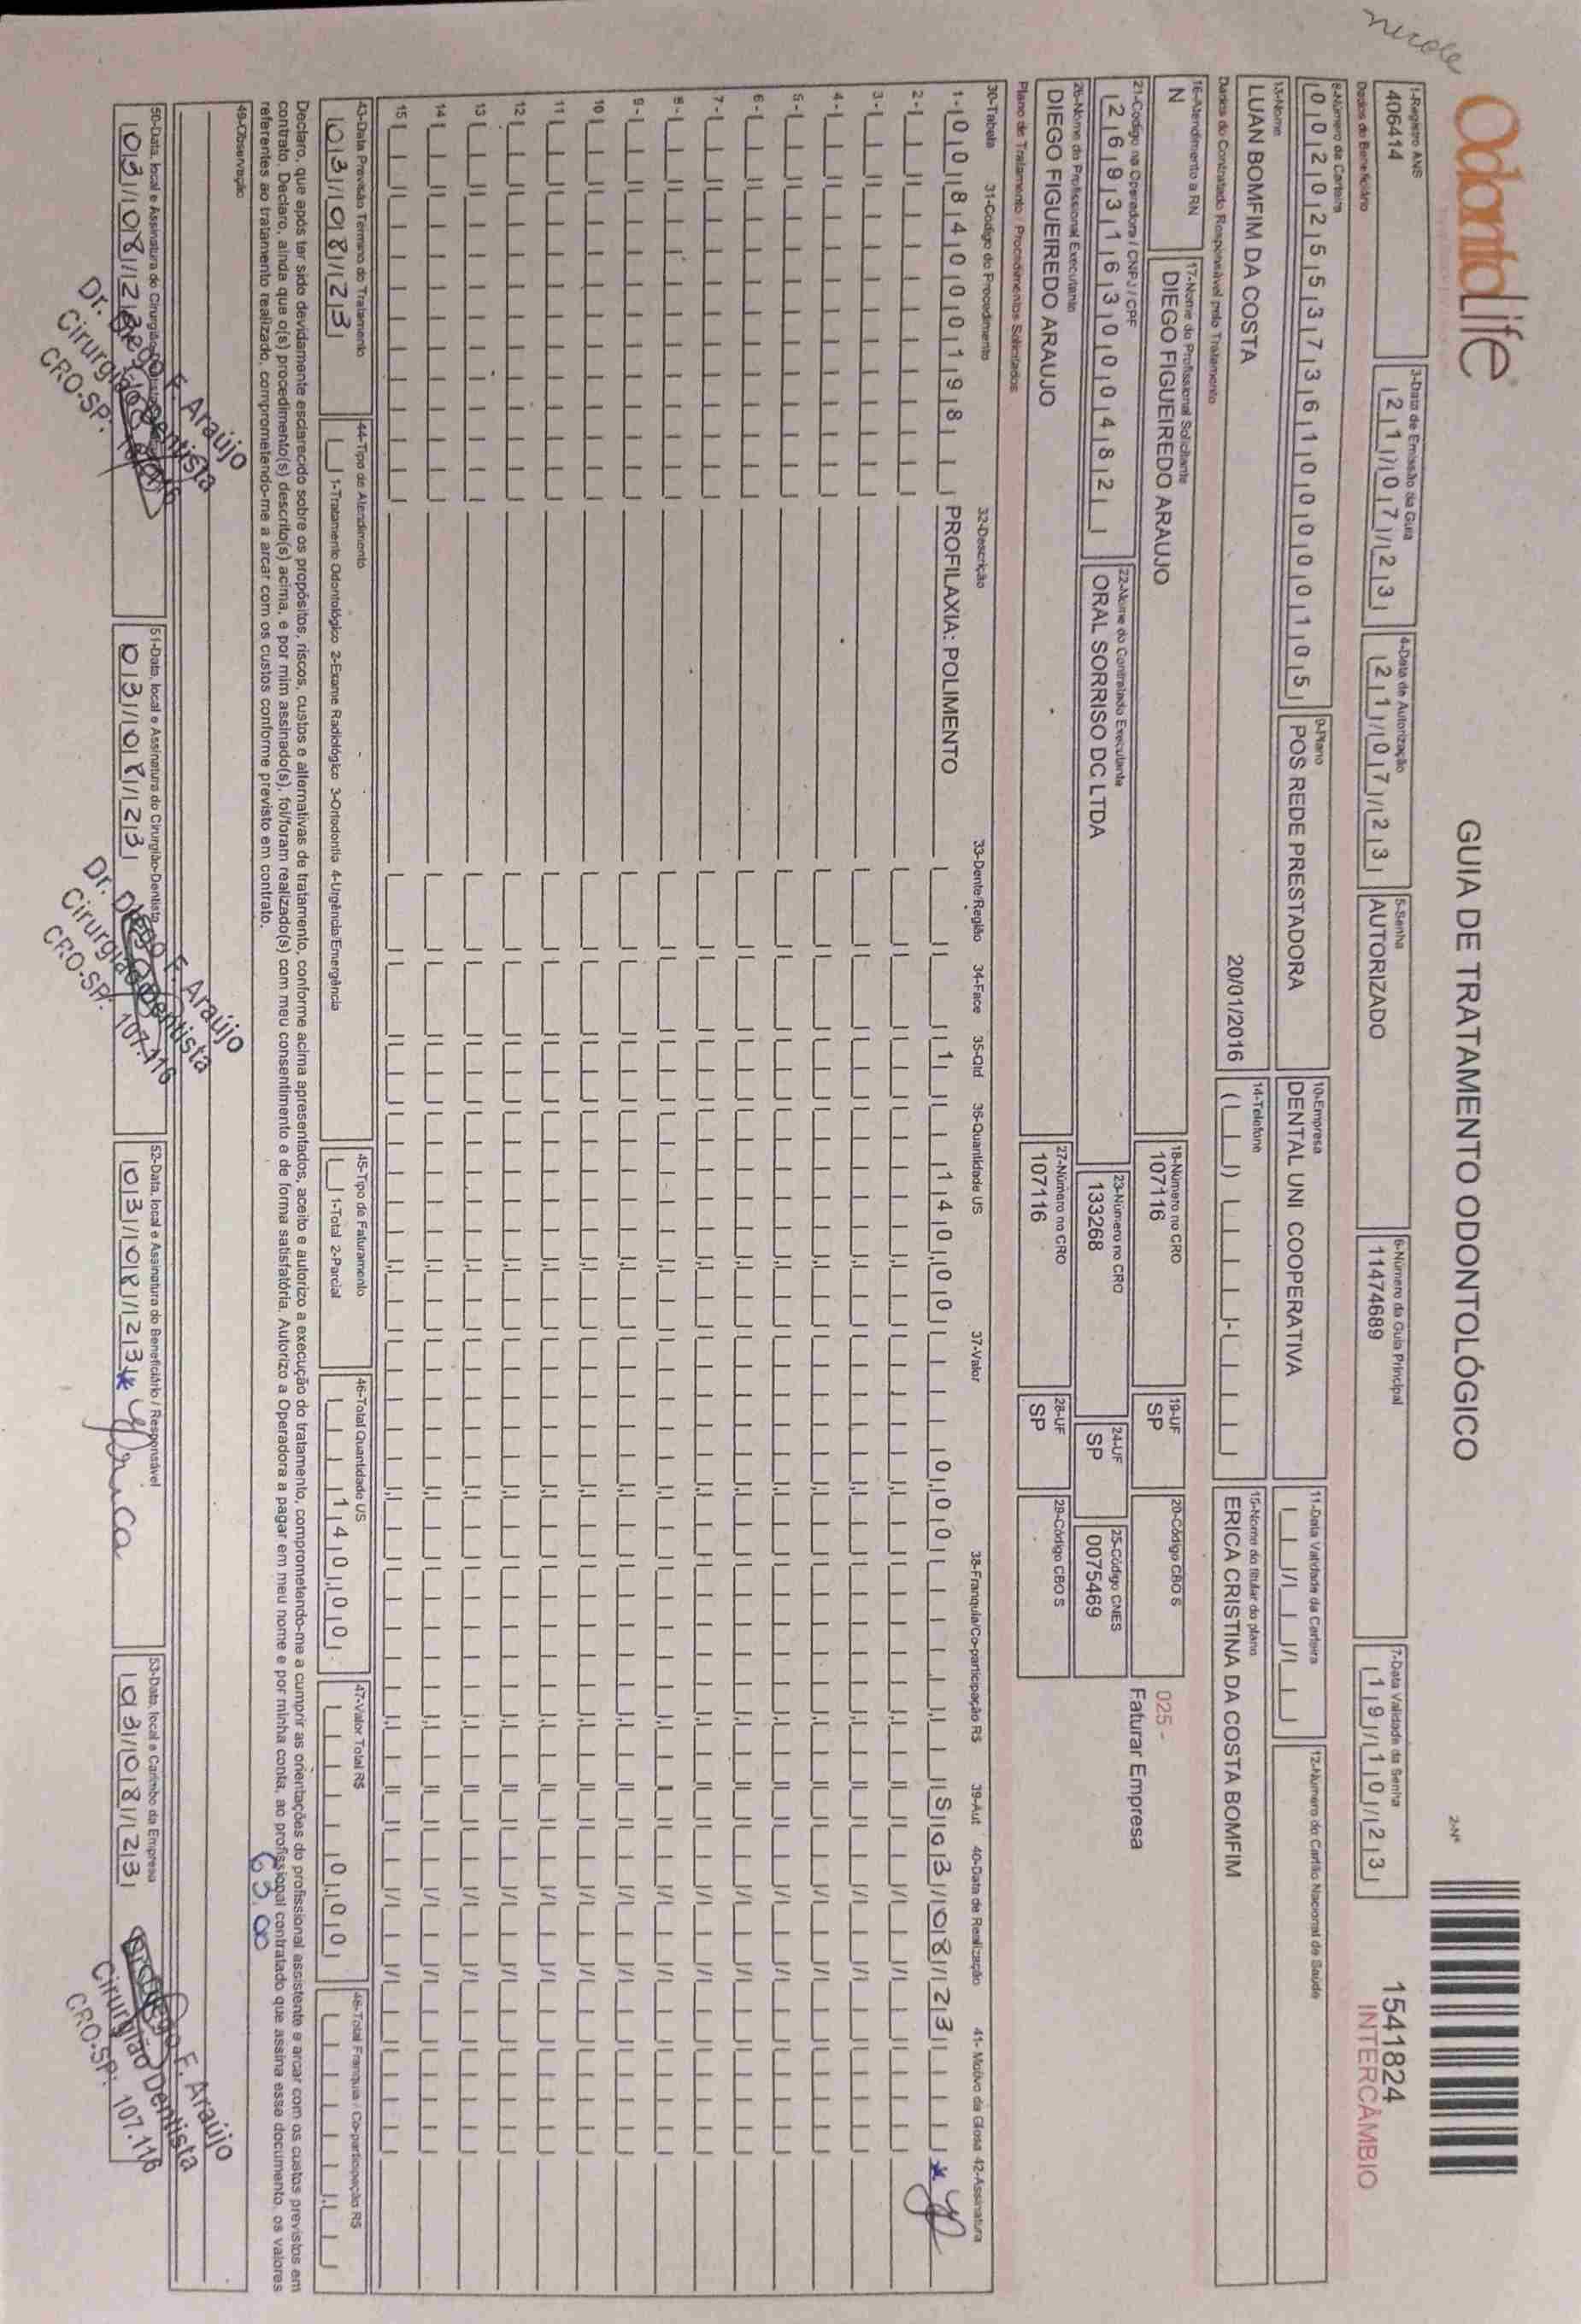 OdontoLife
GUIA DE TRATAMENTO ODONTOLÓGICO
2-Nº
1541824
INTERCÂMBIO
1-Registro ANS
406414
3-Data de Emissão da Guia
21/07/23
4-Data de Autorização
21/07/23
5-Senha
AUTORIZADO
6-Número da Guia Principal
11474689
7-Data Validade da Senha
19/10/23
Dados do Beneficiário
8-Número da Carteira
00202553736100000105
9-Plano
POS REDE PRESTADORA
10-Empresa
DENTAL UNI COOPERATIVA
11-Data Validade da Carteira
12-Número do Cartão Nacional de Saúde
13-Nome
LUAN BOMFIM DA COSTA
20/01/2016
14-Telefone
15-Nome do titular do plano
ERICA CRISTINA DA COSTA BOMFIM
Dados do Contratado Responsável pelo Tratamento
16-Atendimento a RN
N
17-Nome do Profissional Solicitante
DIEGO FIGUEIREDO ARAUJO
18-Número no CRO
107116
19-UF
SP
20-Código CBO S
025 -
Faturar Empresa
21-Código na Operadora / CNPJ / CPF
26931630000482
22-Nome do Contratado Executante
ORAL SORRISO DC LTDA
23-Número no CRO
133268
24-UF
SP
25-Código CNES
0075469
26-Nome do Profissional Executante
DIEGO FIGUEIREDO ARAUJO
27-Número no CRO
107116
28-UF
SP
29-Código CBO S
Plano de Tratamento / Procedimentos Solicitados
30-Tabela 31-Código do Procedimento 32-Descrição 33-Dente/Região 34-Face 35-Qtd 36-Quantidade US 37-Valor 38-Franquia/Co-participação R$ 39-Aut 40-Data de Realização 41- Motivo da Glosa 42-Assinatura
1- 00 84000198 PROFILAXIA: POLIMENTO 1 140,00 0,00 S 03/08/23 *
2-
3-
4-
5-
6-
7-
8-
9-
10
11
12
13
14
15
43-Data Previsão Término do Tratamento
03/08/23
44-Tipo de Atendimento
1-Tratamento Odontológico 2-Exame Radiológico 3-Ortodontia 4-Urgência/Emergência
45-Tipo de Faturamento
1-Total 2-Parcial
46-Total Quantidade US
140,00
47-Valor Total R$
0,00
48-Total Franquia / Co-participação R$
Declaro, que após ter sido devidamente esclarecido sobre os propósitos, riscos, custos e alternativas de tratamento, conforme acima apresentados, aceito e autorizo a execução do tratamento, comprometendo-me a cumprir as orientações do profissional assistente e arcar com os custos previstos em
contrato. Declaro, ainda que o(s) procedimento(s) descrito(s) acima, e por mim assinado(s), foi/foram realizado(s) com meu consentimento e de forma satisfatória. Autorizo a Operadora a pagar em meu nome e por minha conta, ao profissional contratado que assina esse documento, os valores
referentes ao tratamento realizado, comprometendo-me a arcar com os custos conforme previsto em contrato.
63,00
49-Observação
50-Data, local e Assinatura do Cirurgião-Dentista
03/08/23
Dr. Diego F. Araújo
Cirurgião Dentista
CRO-SP:
51-Data, local e Assinatura do Cirurgião-Dentista
03/08/23
Dr. Diego F. Araújo
Cirurgião Dentista
CRO-SP: 107.116
52-Data, local e Assinatura do Beneficiário / Responsável
03/08/23 *
53-Data, local e Carimbo da Empresa
03/08/23
Dr. Diego F. Araújo
Cirurgião Dentista
CRO-SP: 107.116